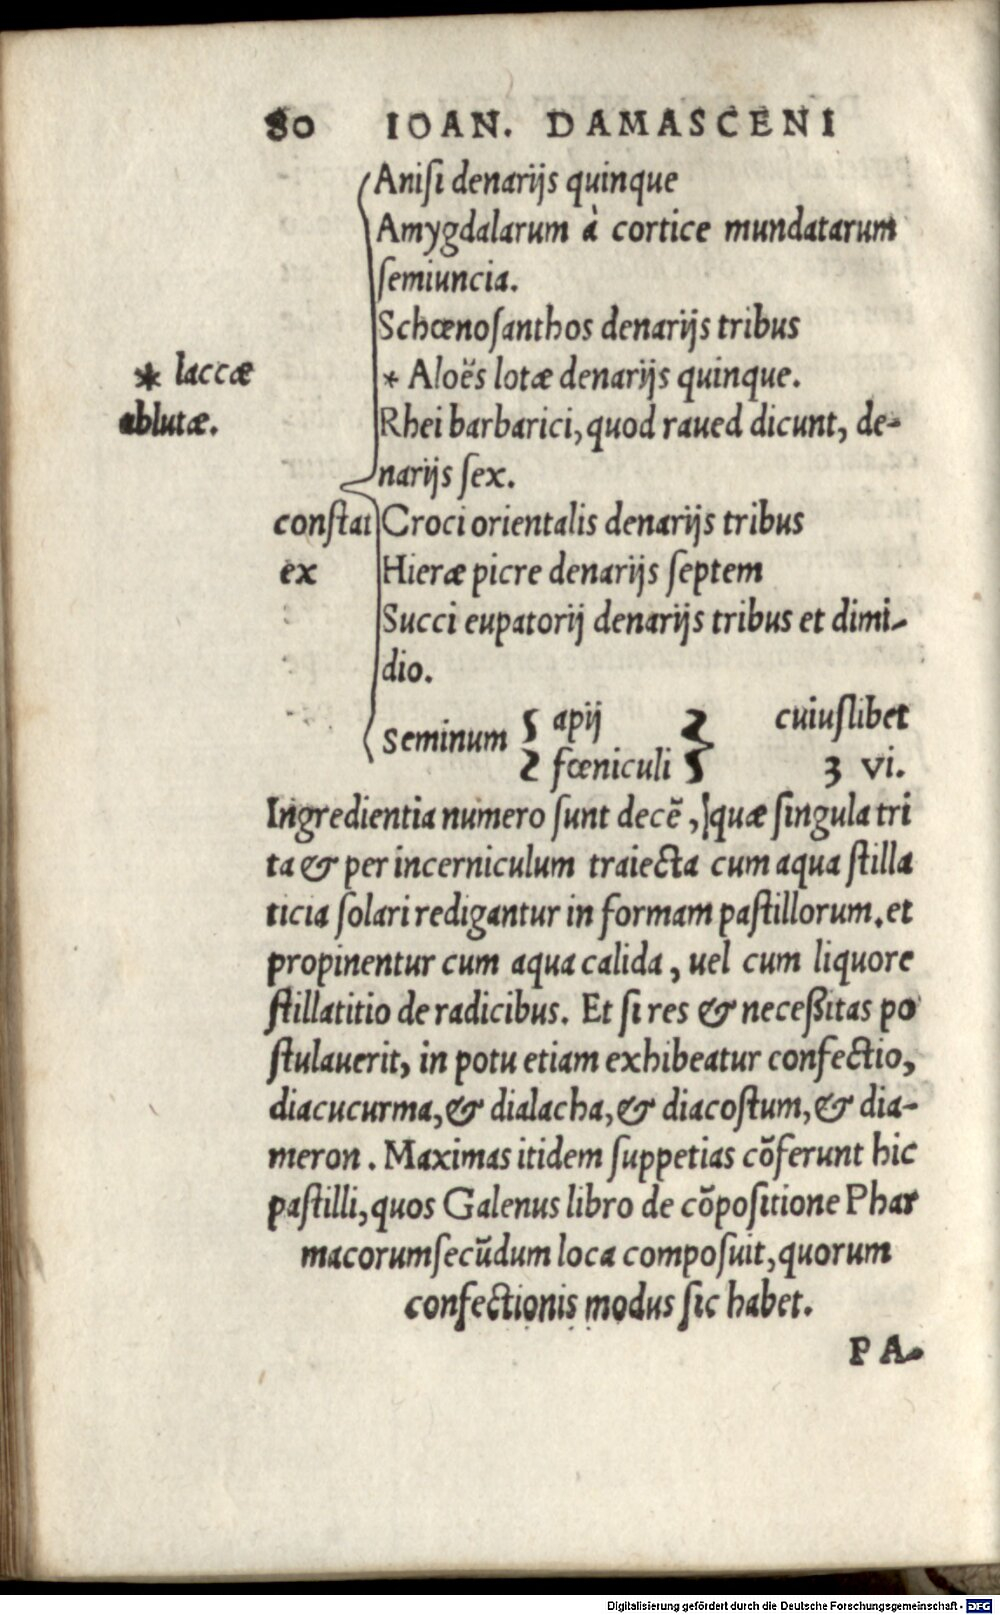 80 IOAN. DAMASCENI
Aniſi denarijs quinque
Amygdalarum à cortice mundatarum
ſemiuncia.
Schœnoſanthos denarijs tribus
* laccæ
ablutæ.
* Aloës lotæ denarijs quinque.
Rhei barbarici, quod raued dicunt, de-
narijs ſex.
conſtat
ex
Croci orientalis denarijs tribus
Hieræ picre denarijs ſeptem
Succi eupatorij denarijs tribus et dimi-
dio.
Seminum { apij } cuiuſlibet
{ fœniculi } ʒ vi.
Ingredientia numero ſunt decē, quæ ſingula tri
ta & per incerniculum traiecta cum aqua ſtilla
ticia ſolari redigantur in formam paſtillorum. et
propinentur cum aqua calida, uel cum liquore
ſtillatitio de radicibus. Et ſi res & neceßitas po
ſtulauerit, in potu etiam exhibeatur confectio,
diacucurma, & dialacha, & diacoſtum, & dia-
meron. Maximas itidem ſuppetias cōferunt hic
paſtilli, quos Galenus libro de cōpoſitione Phar
macorum ſecūdum loca compoſuit, quorum
confectionis modus ſic habet.
PA-
Digitalisierung gefördert durch die Deutsche Forschungsgemeinschaft - DFG